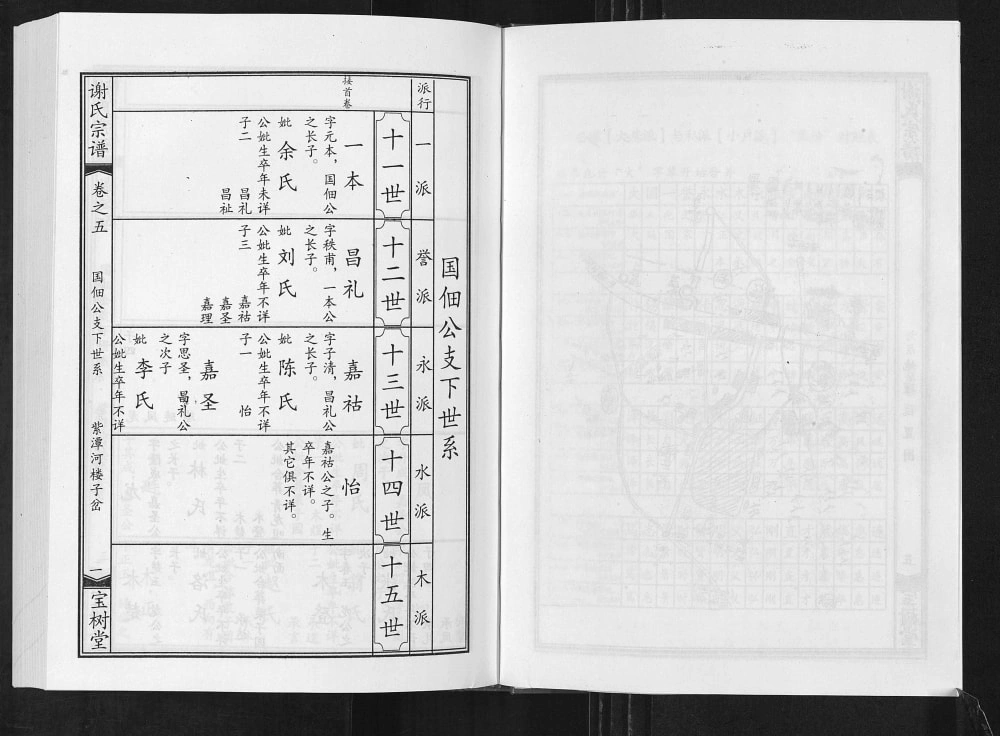 国佃公支下世系
派行
一派
誉派
永派
水派
木派
十一世
十二世
十三世
十四世
十五世
接首卷
一本
字元本，国佃公
之长子。
妣 余氏
公妣生卒年未详
子二 昌礼
昌祉
昌礼
字秩甫，一本公
之长子。
妣 刘氏
公妣生卒年不详
子三 嘉祜
嘉圣
嘉理
嘉祜
字子清，昌礼公
之长子。
妣 陈氏
公妣生卒年不详
子一 怡
嘉圣
字思圣，昌礼公
之次子
妣 李氏
公妣生卒年不详
怡
嘉祜公之子。生
卒年不详。
其它俱不详。
谢氏宗谱
卷之五
国佃公支下世系
紫潭河楼子岔
一
宝树堂